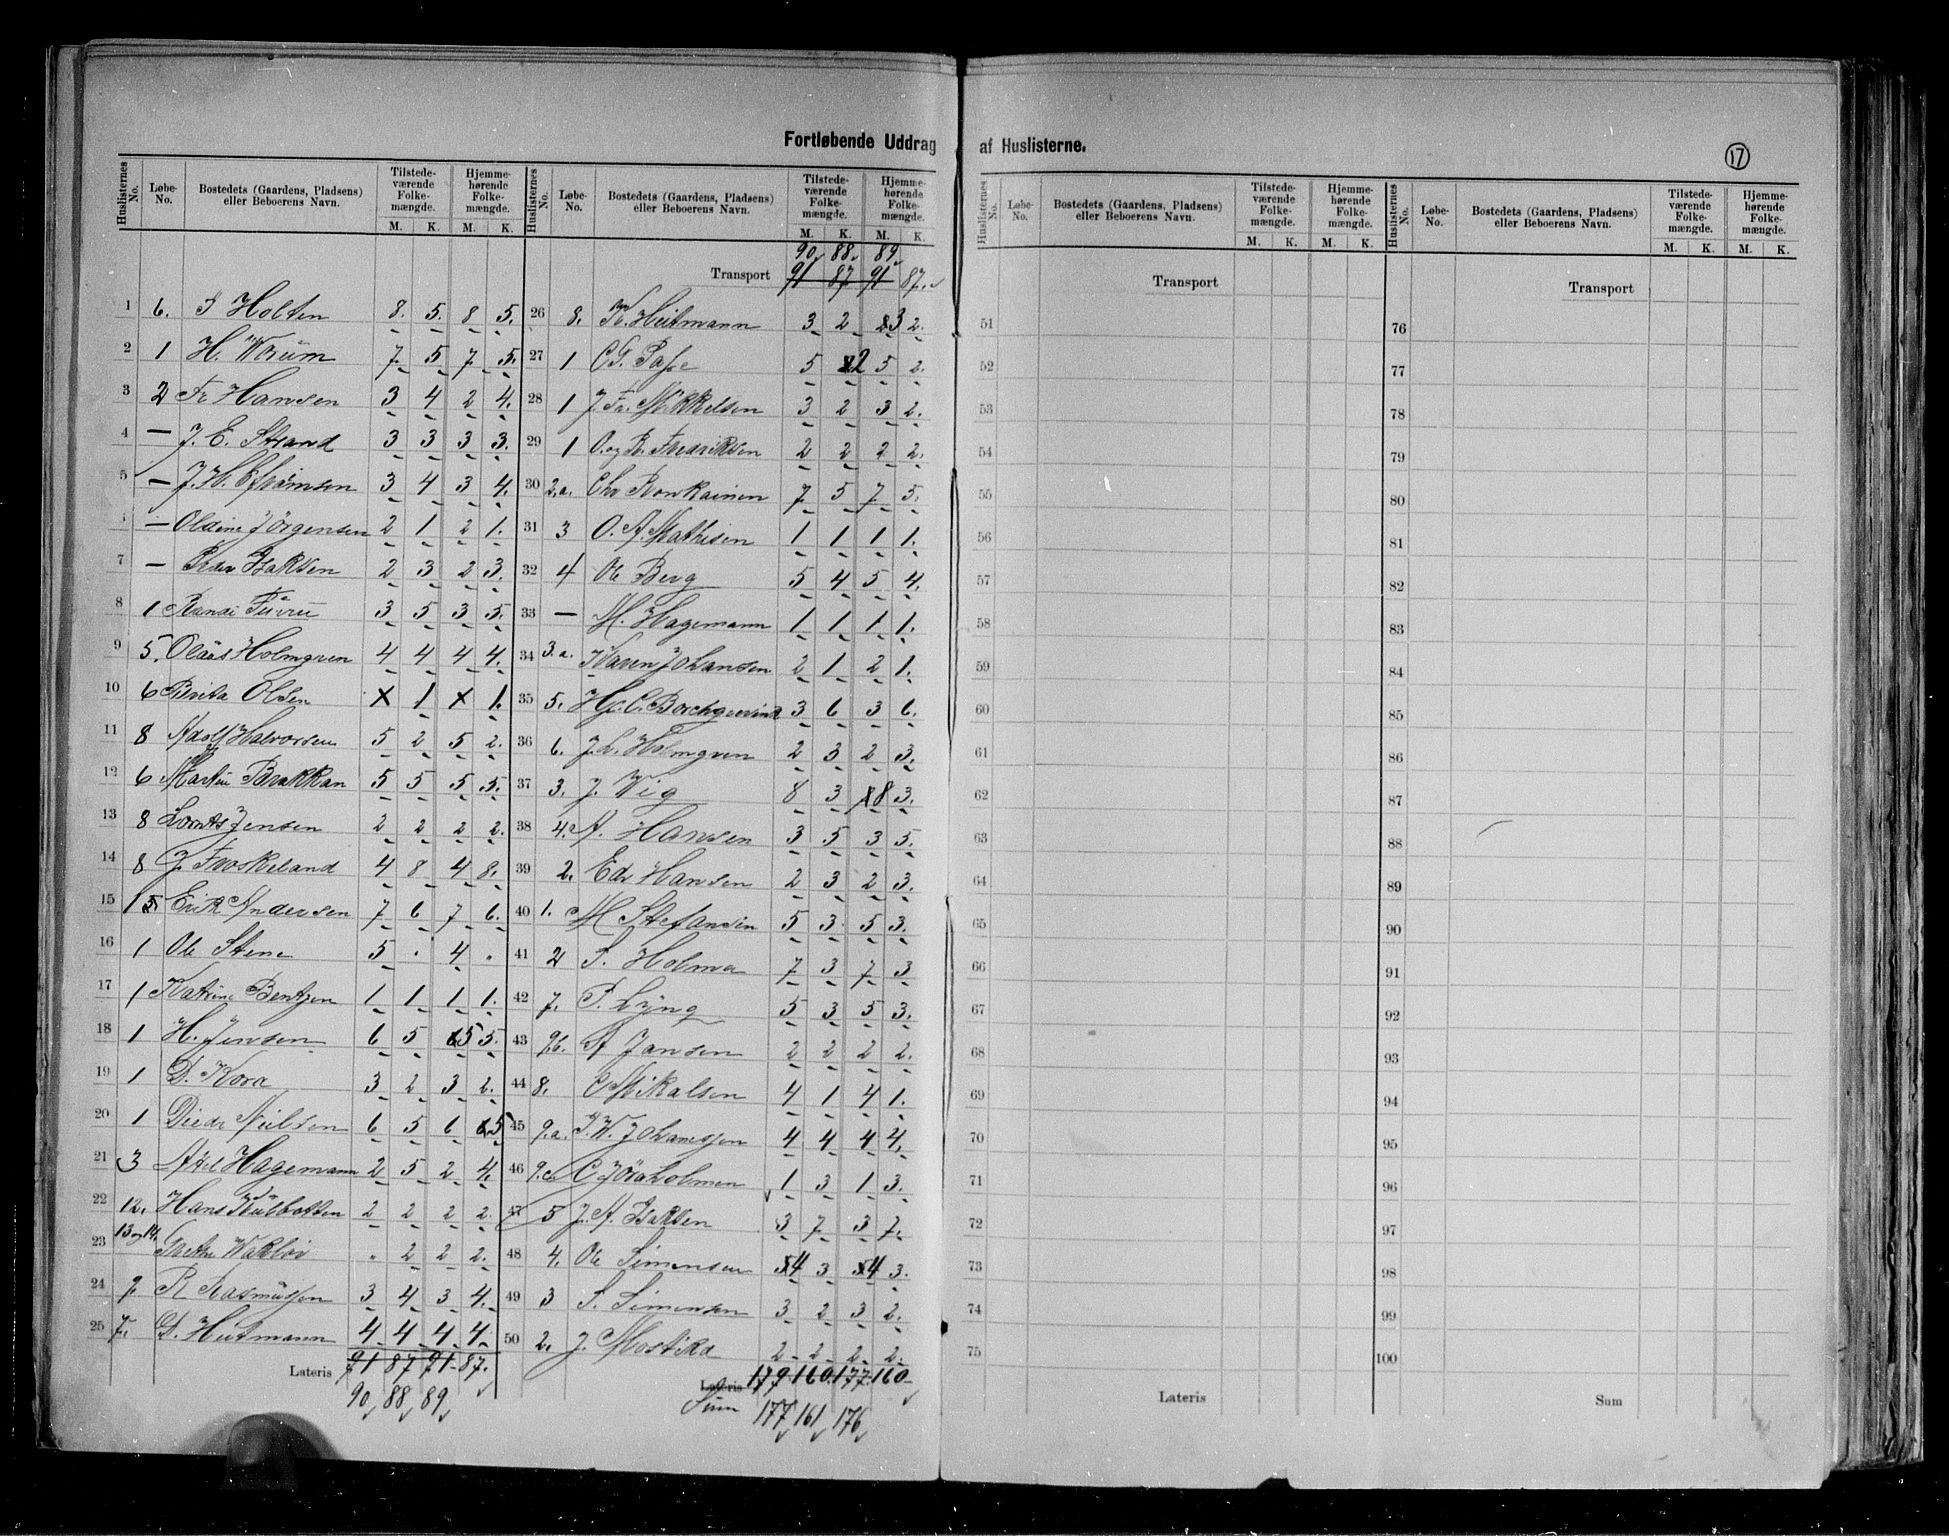 Fortløbende Uddrag af Huslisterne.
17
Huslisternes No. Løbe-No. Bostedets (Gaardens, Pladsens) eller Beboerens Navn. Tilstedeværende Folkemængde. M. K. Hjemmehørende Folkemængde. M. K.
1 6. J Holten 8. 5. 8 5.
2 1 H. Worum 7 5 7 5.
3 2 Fr Hansen 3 4 2 4.
4 — J. E. Strand 3 3 3 3.
5 — J. H. Efraimsen 3 4 3 4.
— Oldine Jörgensen 2 1 2 1.
7 — Peder Isaksen 2 3 2 3.
8 1 3 5 3 5.
9 5. Olaus Holmgren 4 4 4 4.
10 6 Berita Olsen x 1 x 1.
11 8 Adolf Halvorsen 5 2 5 2.
12 6 Martin Brækkan 5 5 5 5.
13 8 Lornts Jensen 2 2 2 2.
14 8 J Froskeland 4 8 4 8.
15 15. Erik Andersen 7 6 7 6.
16 1 Ole Stene 5 . 4 .
17 1 Katrine Bentzen 1 1 1 1.
18 1 H. Jensen 6 5 5 5.
19 1 D. Kora 3 2 3 2.
20 1 Diedr Nielsen 6 5 6 5
21 3 Axel Hagemann 2 5 2 4.
22 12. Hans Kulbotten 2 2 2 2.
23 13 og 14. Grethe " 2 2 2.
24 9. R Rasmussen 3 4 3 4.
25 7. D. Heitmann 4 4 4 4.
Lateris 91 87 91 87.
90 88 89
Huslisternes No. Løbe-No. Bostedets (Gaardens, Pladsens) eller Beboerens Navn. Tilstedeværende Folkemængde. M. K. Hjemmehørende Folkemængde. M. K.
90 88 89
Transport 91 87 91 87.
26 8. Fr. Heitmann 3 2 3 2.
27 1 5 2 5 2.
28 1 J Fr. Mikkelsen 3 2 3 2.
29 1 O. og R. Fredriksen 2 2 2 2.
30 2.a. Chr Ronkainen 7 5 7 5.
31 3 O. A. Mathisen 1 1 1 1.
32 4 Ole Berg 5 4 5 4.
33 — M. Hagemann 1 1 1 1.
34 3.a. Karen Johansen 2 1 2 1.
35 5. H. C. Borchgrevink 3 6 3 6.
36 6. J. L. Holmgren 2 3 2 3.
37 3. J. Wig 8 3 8 3.
38 4. A. Hansen 3 5 3 5.
39 2. Edv Hansen 2 3 2 3.
40 1. M Stefansen 5 3 5 3.
41 2 S. Holma 7 3 7 3
42 7. P. Lyng 5 3 5 3.
43 9b. A Jansen 2 2 2 2.
44 8. C Mikalsen 4 1 4 1.
45 9.a. J. W. Johannsen 4 4 4 4.
46 9.c. C Jöraholmen 1 3 1 3.
47 5 J. A. Isaksen 3 7 3 7.
48 4. Ole Simonsen 4 3 4 3.
49 3 S. Simonsen 3 2 3 2.
50 2. J. Mostika 2 2 2 2.
Lateris 179 160. 177. 160
Sum 177 161 176
Huslisternes No. Løbe-No. Bostedets (Gaardens, Pladsens) eller Beboerens Navn. Tilstedeværende Folkemængde. M. K. Hjemmehørende Folkemængde. M. K.
Transport
51
52
53
54
55
56
57
58
59
60
61
62
63
64
65
66
67
68
69
70
71
72
73
74
75
Lateris
Huslisternes No. Løbe-No. Bostedets (Gaardens, Pladsens) eller Beboerens Navn. Tilstedeværende Folkemængde. M. K. Hjemmehørende Folkemængde. M. K.
Transport
76
77
78
79
80
81
82
83
84
85
86
87
88
89
90
91
92
93
94
95
96
97
98
99
100
Sum